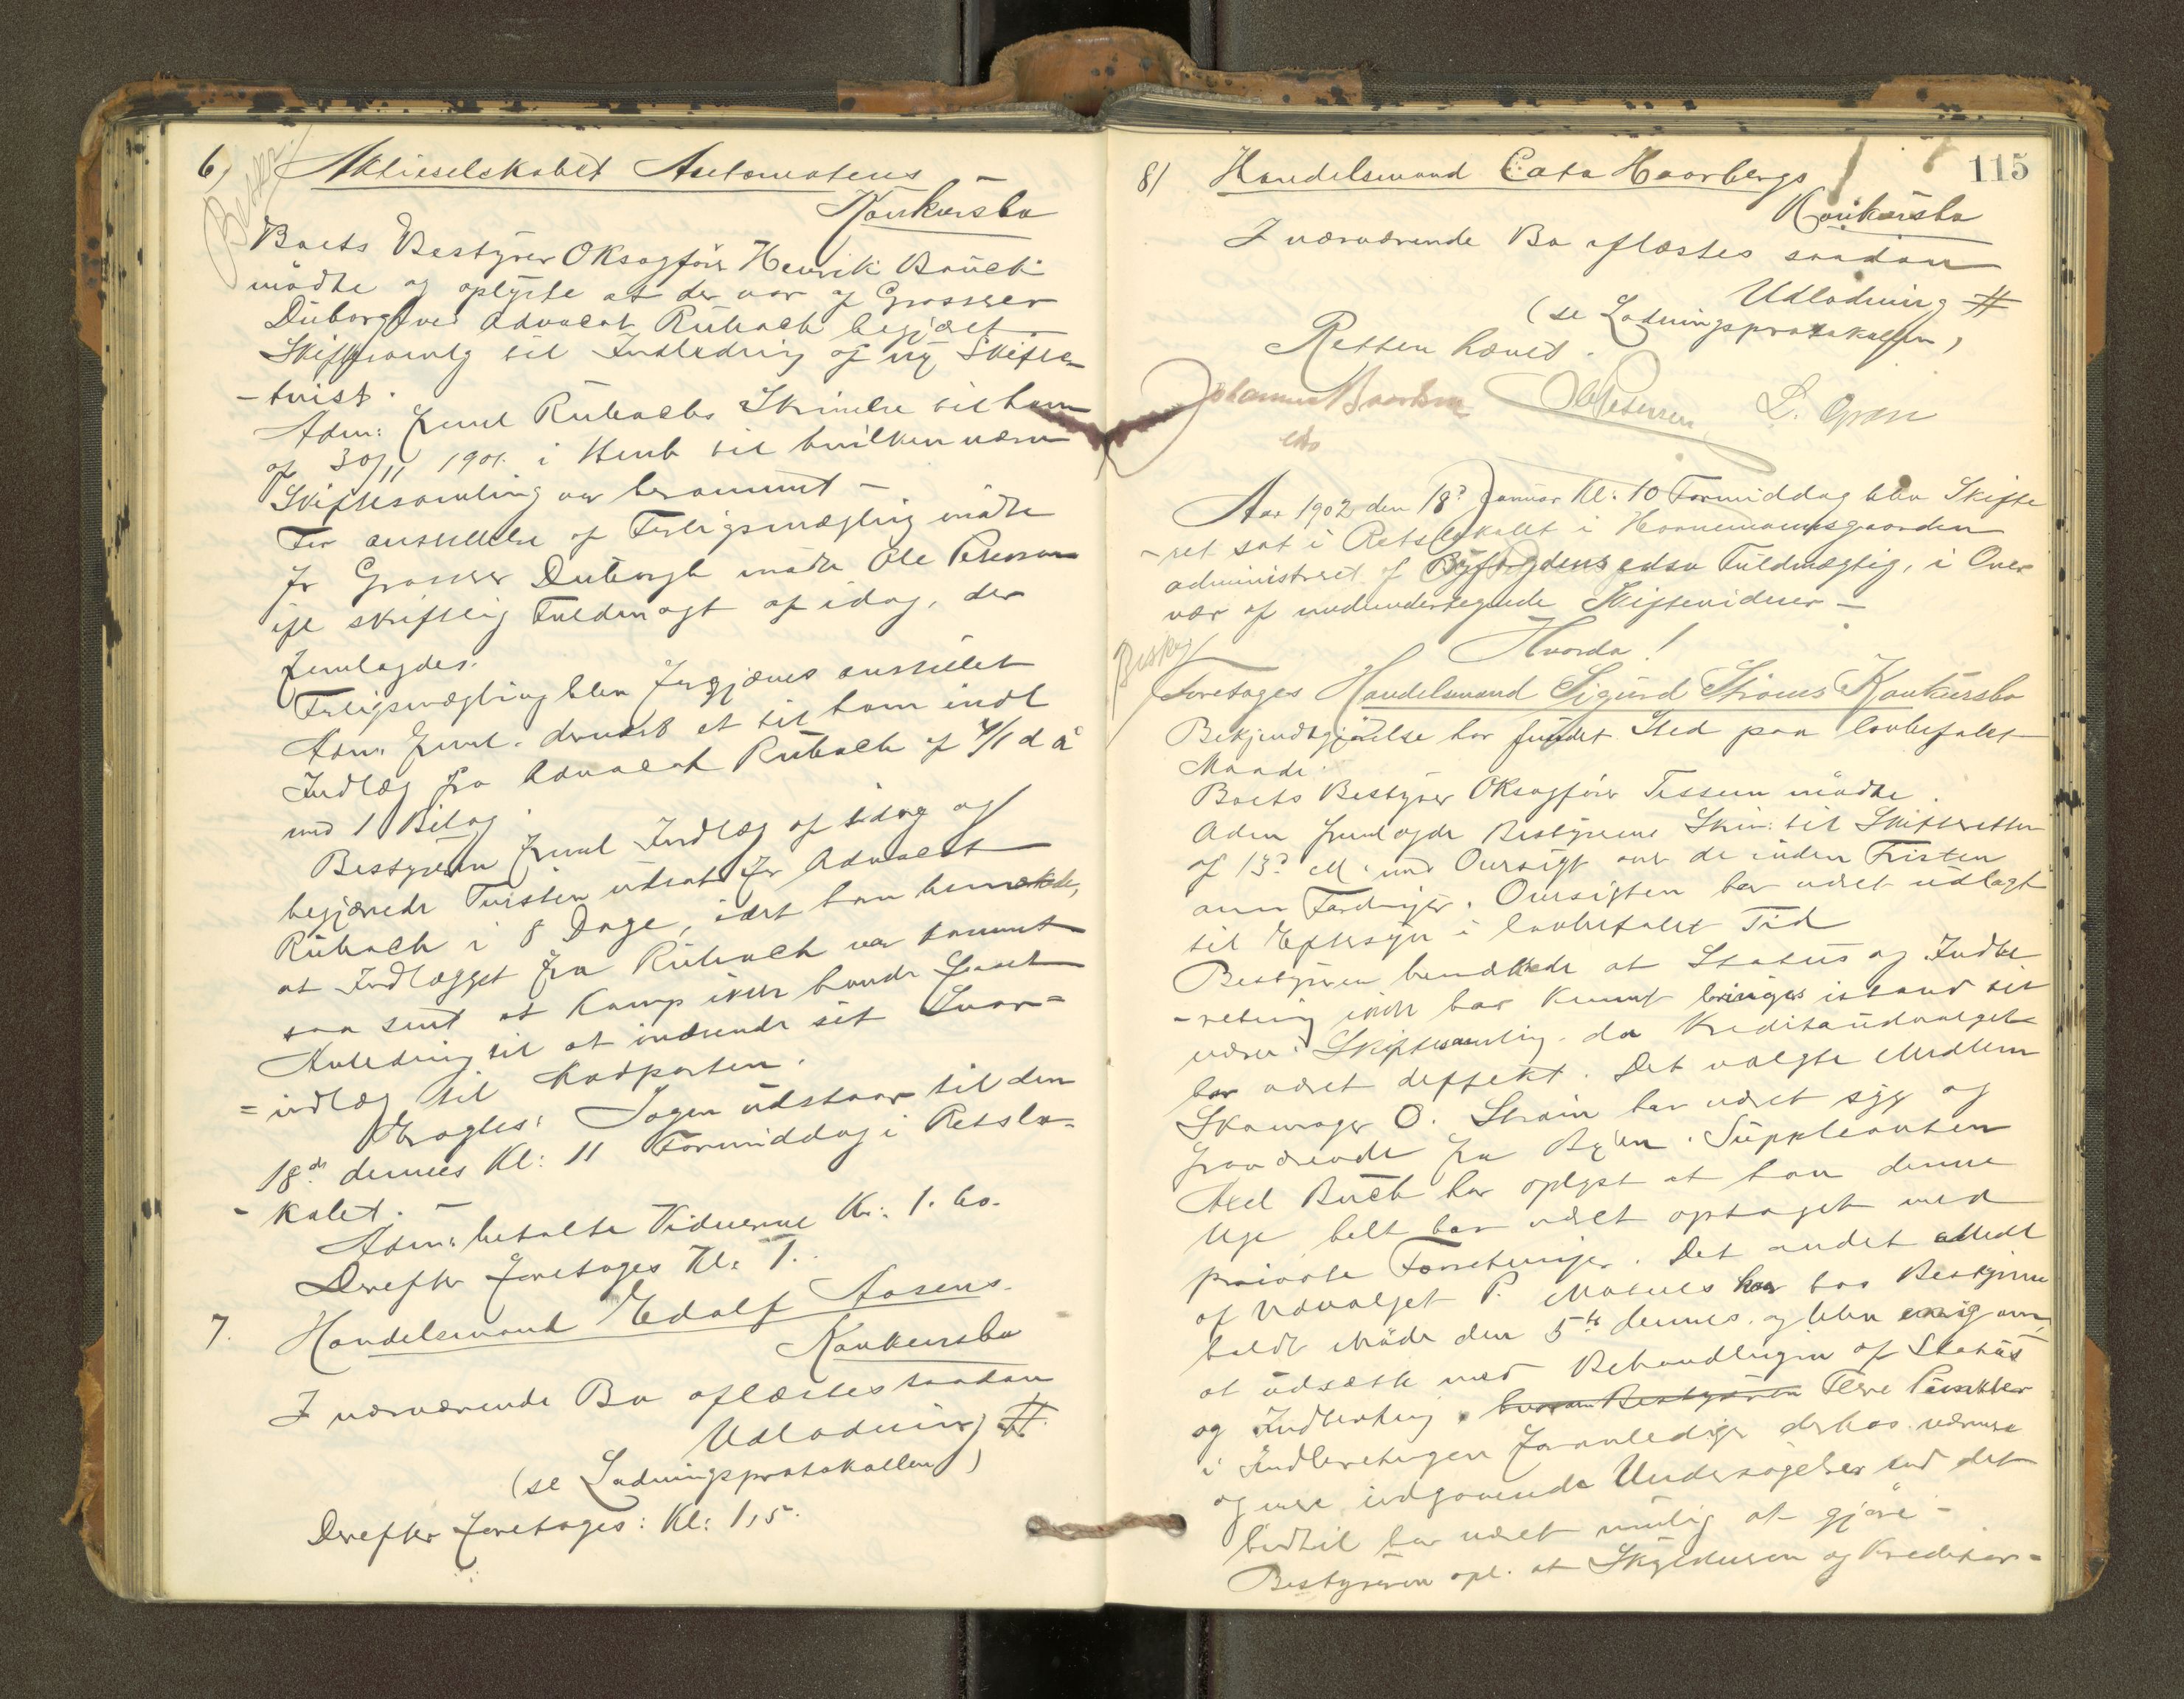 6) Aktieselskabet Automatens
Konkursbo
Boets Bestyrer OKsagfører Henrik Bauck
mødte og oplyste at der var af Grosserer
Duborgh ved Advocat Rubach begjæret
Skiftesamlg til Indledning af ny Skifte-
-tvist.
Adm: freml Rubachs Skrivelse til ham
af 30/11 1901. i Henh til hvilken nærv
Skiftesamling var berammet -
For anstillelse af Forligsmægling mødte
for Grosserer Duborgh mødte Ole Peterson
ifl skriftlig Fuldmagt af idag, der
fremlagdes.
Forligsmægling blev forgjæves anstillet
Adm. freml. dernæst et til ham indl
Indlæg fra Advocat Rubach af 7/1 d å
med 1 Bilag.
Bestyreren freml Indlæg af idag og
begjærede Tvisten udsat for Advocat
Rubach i 8 Dage, idet han bemærkede,
at Indlægget fra Rubach var kommet
saa sent at Komp ikke havde havt
Anledning til at indsende sit Svar-
=indlæg til Modparten.
Eragtes: Sagen udstaar til den
18de dennes Kl: 11 Formiddag i Retslo-
-kalet. -
Adm: betalte Vidnerne Kr: 1.60.
Derefter foretoges Kl: 1.
7. Handelsmand Edolf Aasens
Konkursbo
I nærværende Bo aflæstes saadan
Udlodning #
(se Lodningsprotokollen)
Derefter foretoges: Kl: 1,5.
115
8) Handelsmand Cato Haarbergs
Konkursbo
I nærværende Bo aflæstes saadan
Udlodning #
(se Lodningsprotokollen)
Retten hævet.
Ole Petersen L. Gran
Aar 1902 den 18d Januar Kl: 10 Formiddag blev Skifte
-ret sat i Retslokalet i Hornemannsgaarden
administreret af Byfogdens edsv Fuldmægtig, i Over
vær af medundertegnede Skiftevidner -
Hvorda!
Foretoges Handelsmand Sigurd Strøms Konkursbo
Bekjendtgjørelse har fundet Sted paa lovbefalet
Maade.
Boets Bestyrer OKsagfører Tessem mødte.
Adm fremlagde Bestyrerens Skriv: til Skifteretten
af 13d M. med Oversigt over de inden Fristen
anm Fordringer. Oversigten har været udlagt
til Eftersyn i lovbefalet Tid
Bestyreren bemærkede at Status og Indbe
-retning ikke har kunnet bringes istand til
nærv: Skiftesamling. da Kreditorudvalget
har været deffekt. Det valgte Medlem
Skomager O. Strøm har været syg og
fraværende fra Byen. Suppleanten
Axel Buch har oplyst at han denne
Uge helt har været optaget med
private Forretninger. Det andet Medl
af Udvalget P. Moxness har hos Bestyreren
holdt Møde den 5te dennes. og blev enig om,
at udsætte med Behandlingen af Status
og Indberetning. hvorom Bestyreren Flere Punkter
i Indberetngen foranlediger derhos nærmere
og mere indgaaende Undersøgelser end det
hidtil har været mulig at gjøre -
Bestyreren opl. at Skyldneren og Kreditor-